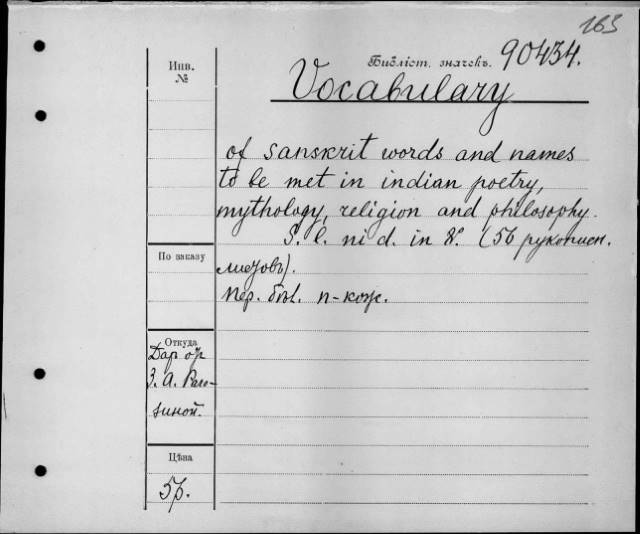 163
Библіот. значекъ. 90434.
Инв.
№
Vocabulary
of sanskrit words and names
to be met in indian poetry,
mythology, religion and philosophy.
S. l. ni d. in 8°. (56 рукописн.
листовъ).
По заказу
пер. п-кож.
Откуда
Дар от
З. А. Раго-
зиной.
Цѣна
5р.